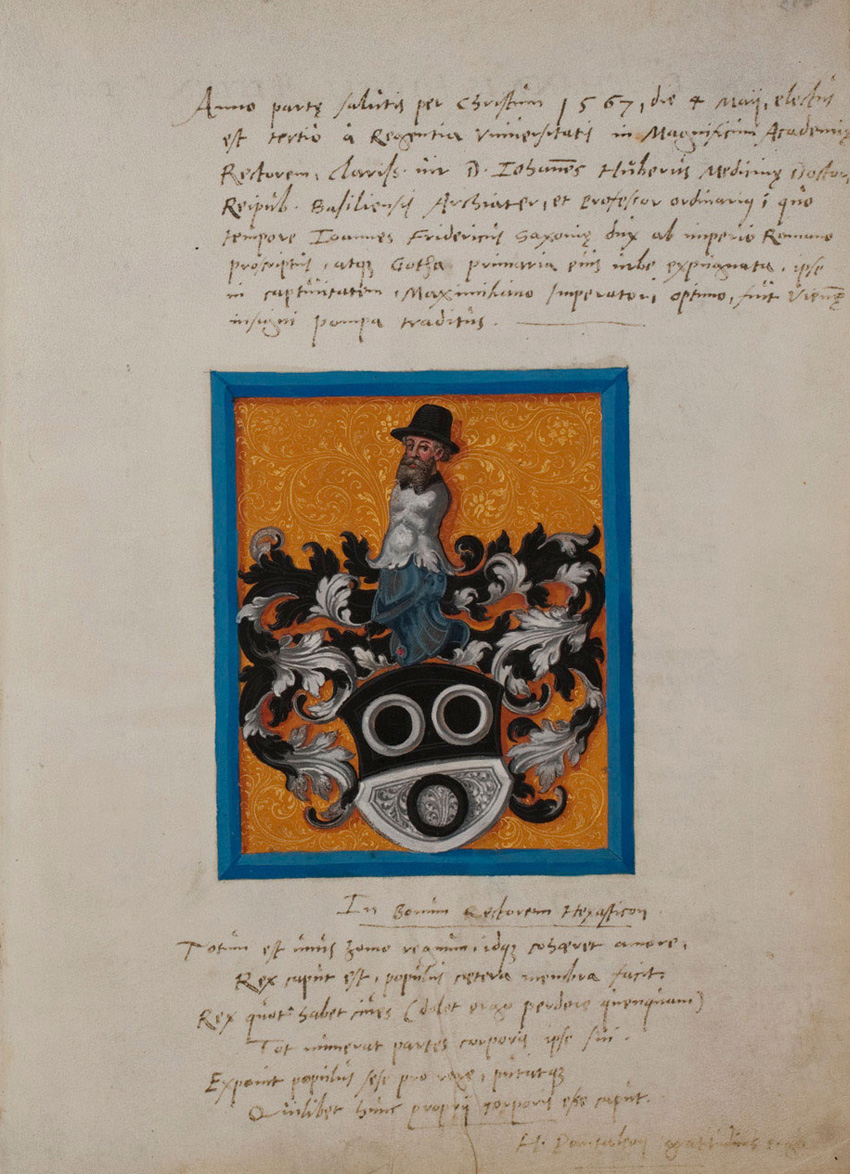 Anno partę salutis per Christum 1567, die 4 Maij, electus
est tertio à Regentia Vniuersitatis in Magnificum Academię
Rectorem, clariss. uir D. Iohannes Huberus Medicinę Doctor,
Reipub. Basiliensis Archiater, et Professor ordinarius: quo
tempore Ioannes Fridericus Saxonię dux ab imperio Romano
proscriptus, atqꝫ Gotha primaria eius urbe expugnata, ipse
in captiuitatem, Maximiliano Imperatori optimo, fuit Viennę
insigni pompa traditus.
In Bonum Rectorem Hexasticon.
Totum est unus homo regnum, idqꝫ cohæret amore,
Rex caput est, populus cætera membra facit.
Rex quot habet ciues (dolet ergo perdere quenquam)
Tot numerat partes corporis ipse sui.
Exponit populus sese pro rege, putatqꝫ
Quilibet hunc proprij corporis esse caput.
H. Pantaleon